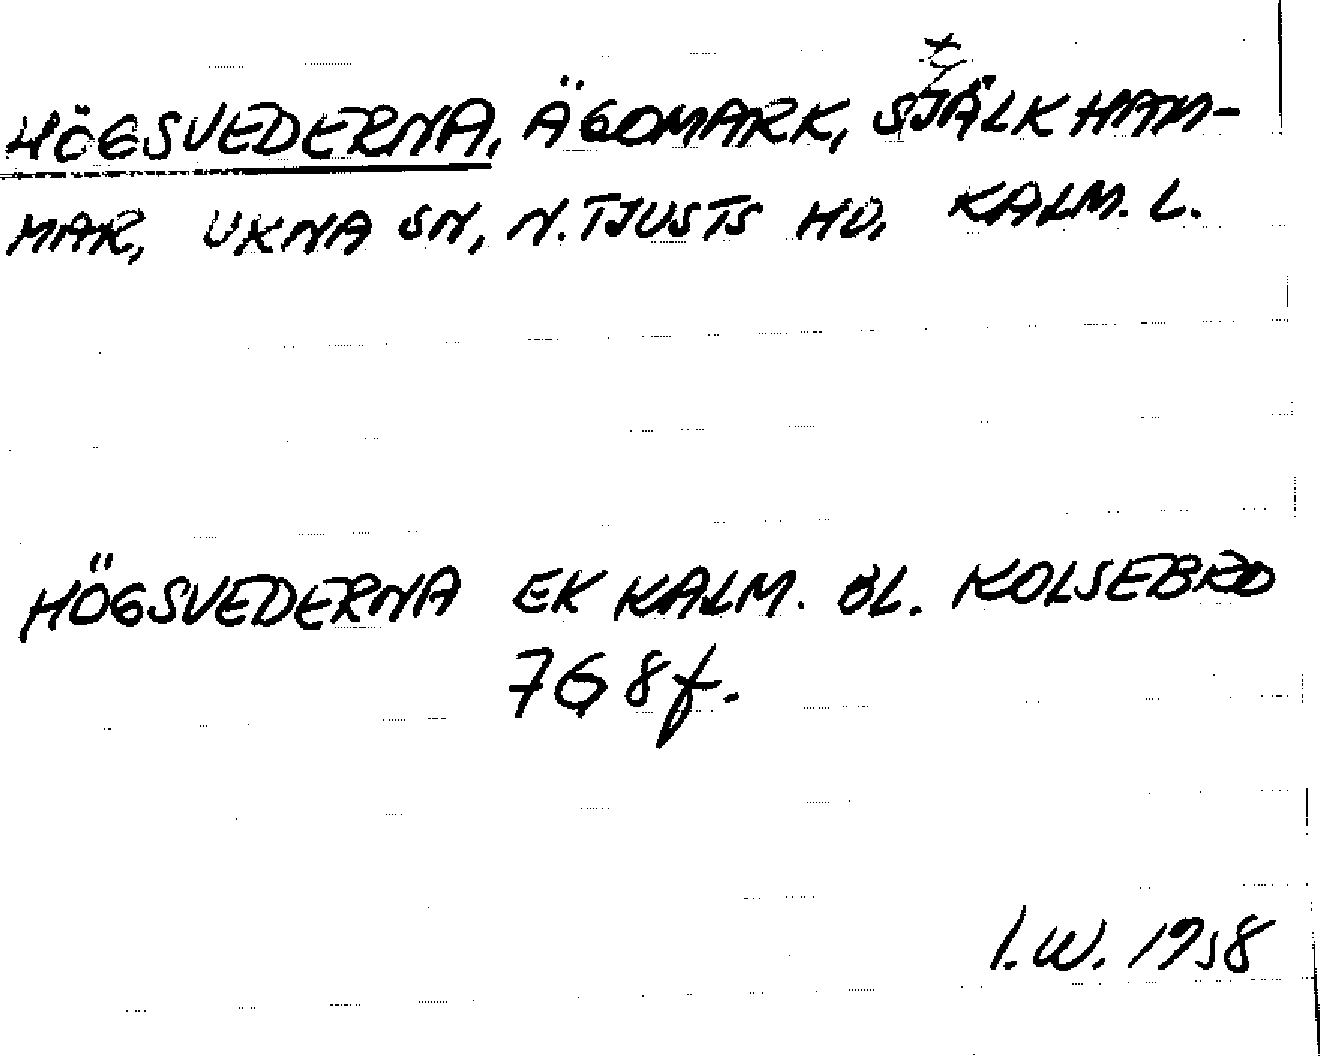 HÖGSVEDERNA, ÄGOMARK, SJÄLKHAM-
MAR, UKNA SN, N. TJUSTS HD, KALM. L.
HÖGSVEDERNA EK KALM. BL. KOLSEBRO
768f.
I.W. 1958